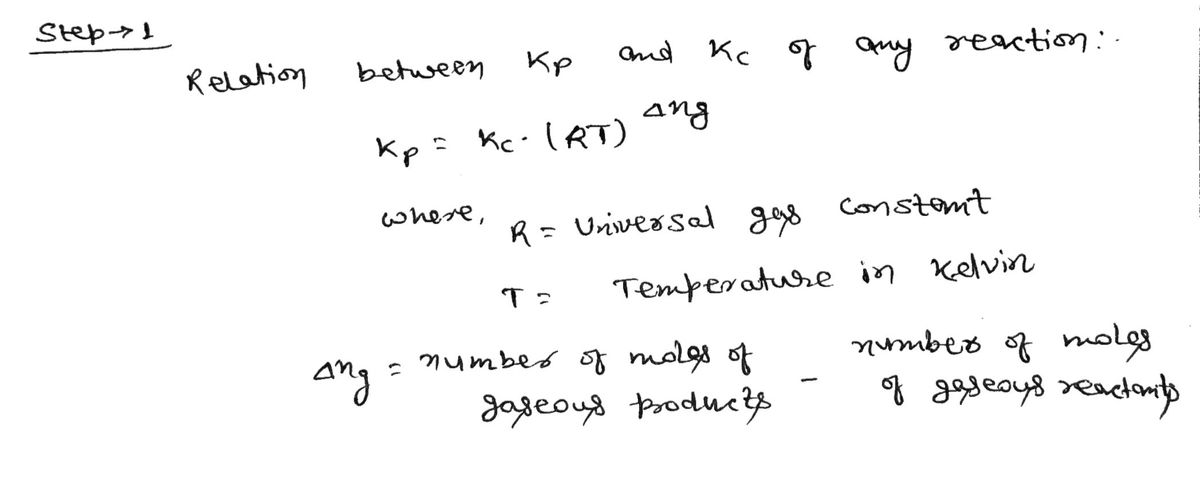 Step→1
Relation between Kp and Kc of any reaction:-
Kp = Kc.(RT)^Δng
where, R = Universal gas constant
T = Temperature in Kelvin
Δng = number of moles of gaseous products - number of moles of gaseous reactants